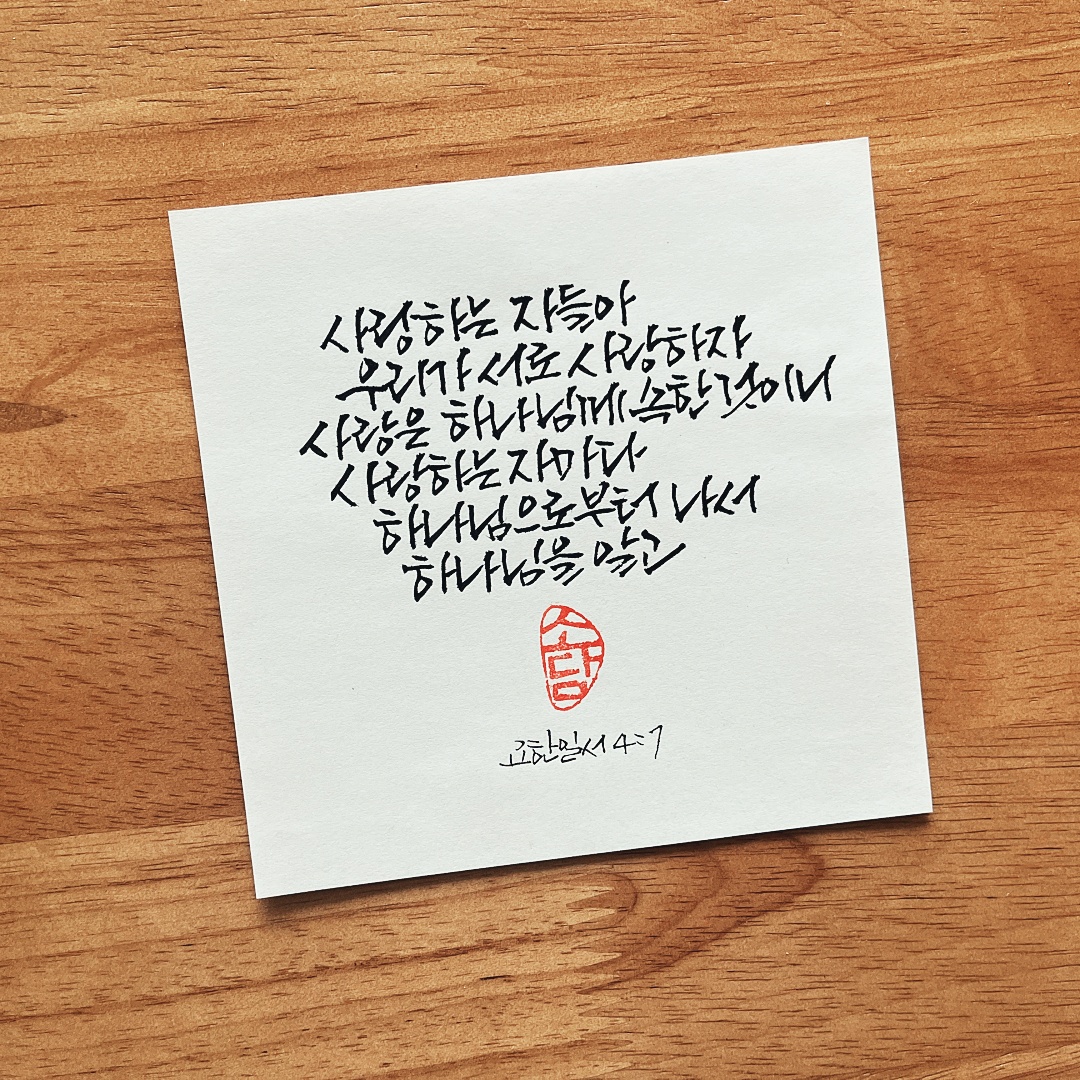 사랑하는 자들아
우리가 서로 사랑하자
사랑은 하나님께 속한 것이니
사랑하는 자마다
하나님으로부터 나서
하나님을 알고
소담
요한일서 4:7